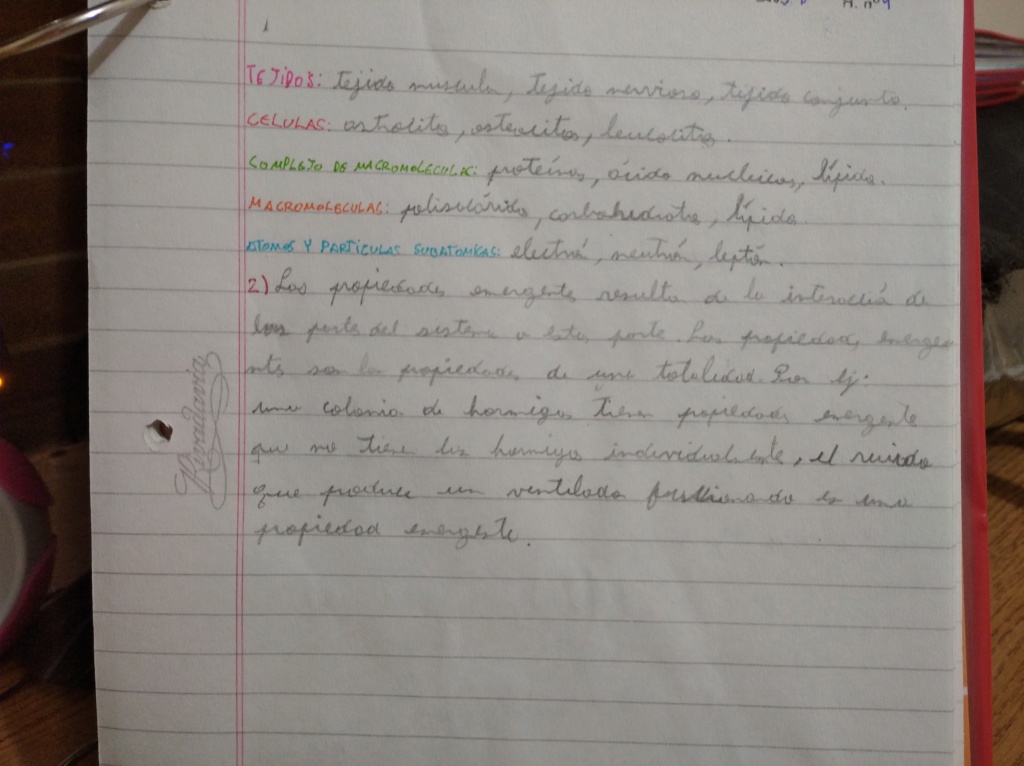 H. nº4
TEJIDOS: tejido muscular, tejido nervioso, tejido conjunto.
CELULAS: astrolitos, osteocitos, leucocitos.
COMPLEJO DE MACROMOLECULAS: proteínas, ácido nucleicos, lípido.
MACROMOLECULAS: polisacárido, carbohidratos, lípido.
ATOMOS Y PARTICULAS SUBATOMICAS: electrón, neutrón, leptón.
2) Las propiedades emergentes resulta de la interacción de
las parte del sistema o esta parte. Las propiedades emerge
ntes son las propiedades de una totalidad. Por ej:
una colonia de hormigas tienen propiedades emergente
que no tiene las hormigas individualmente, el ruido
que produce un ventilador funcionando es una
propiedad emergente.
Rivadavia